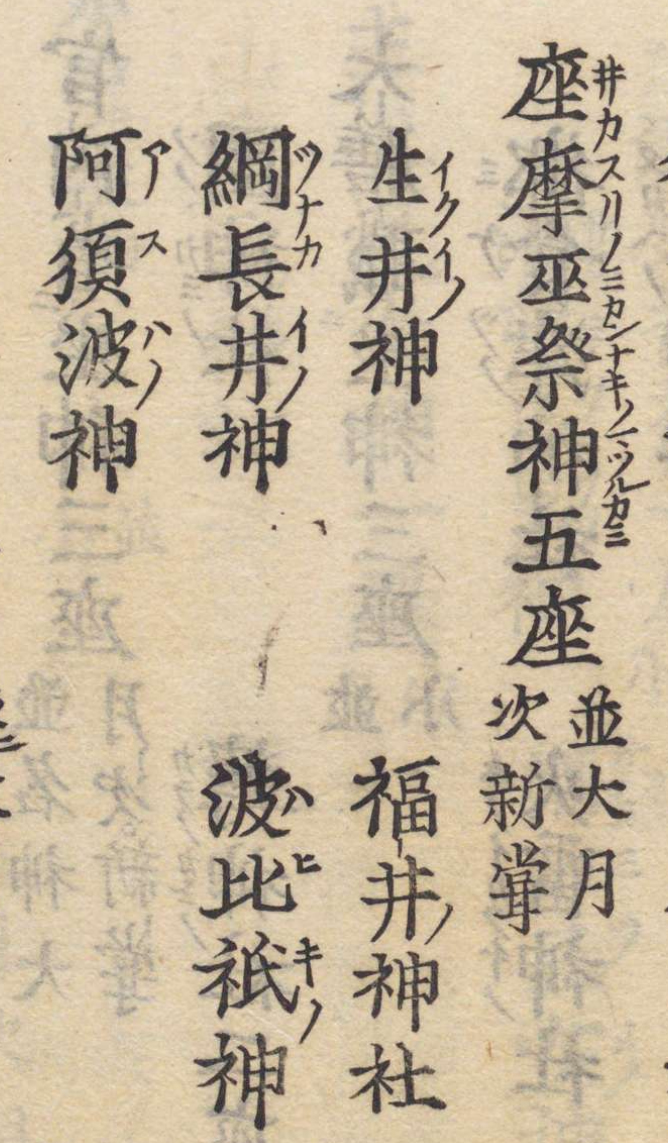 座摩巫祭神五座 並大月次新甞
井カスリノミカンナキノマツルカミ
生井神 福井神社
イクイノ ノ
綱長井神 波比祇神
ツナカイノ ハヒキノ
阿須波神
アスハノ